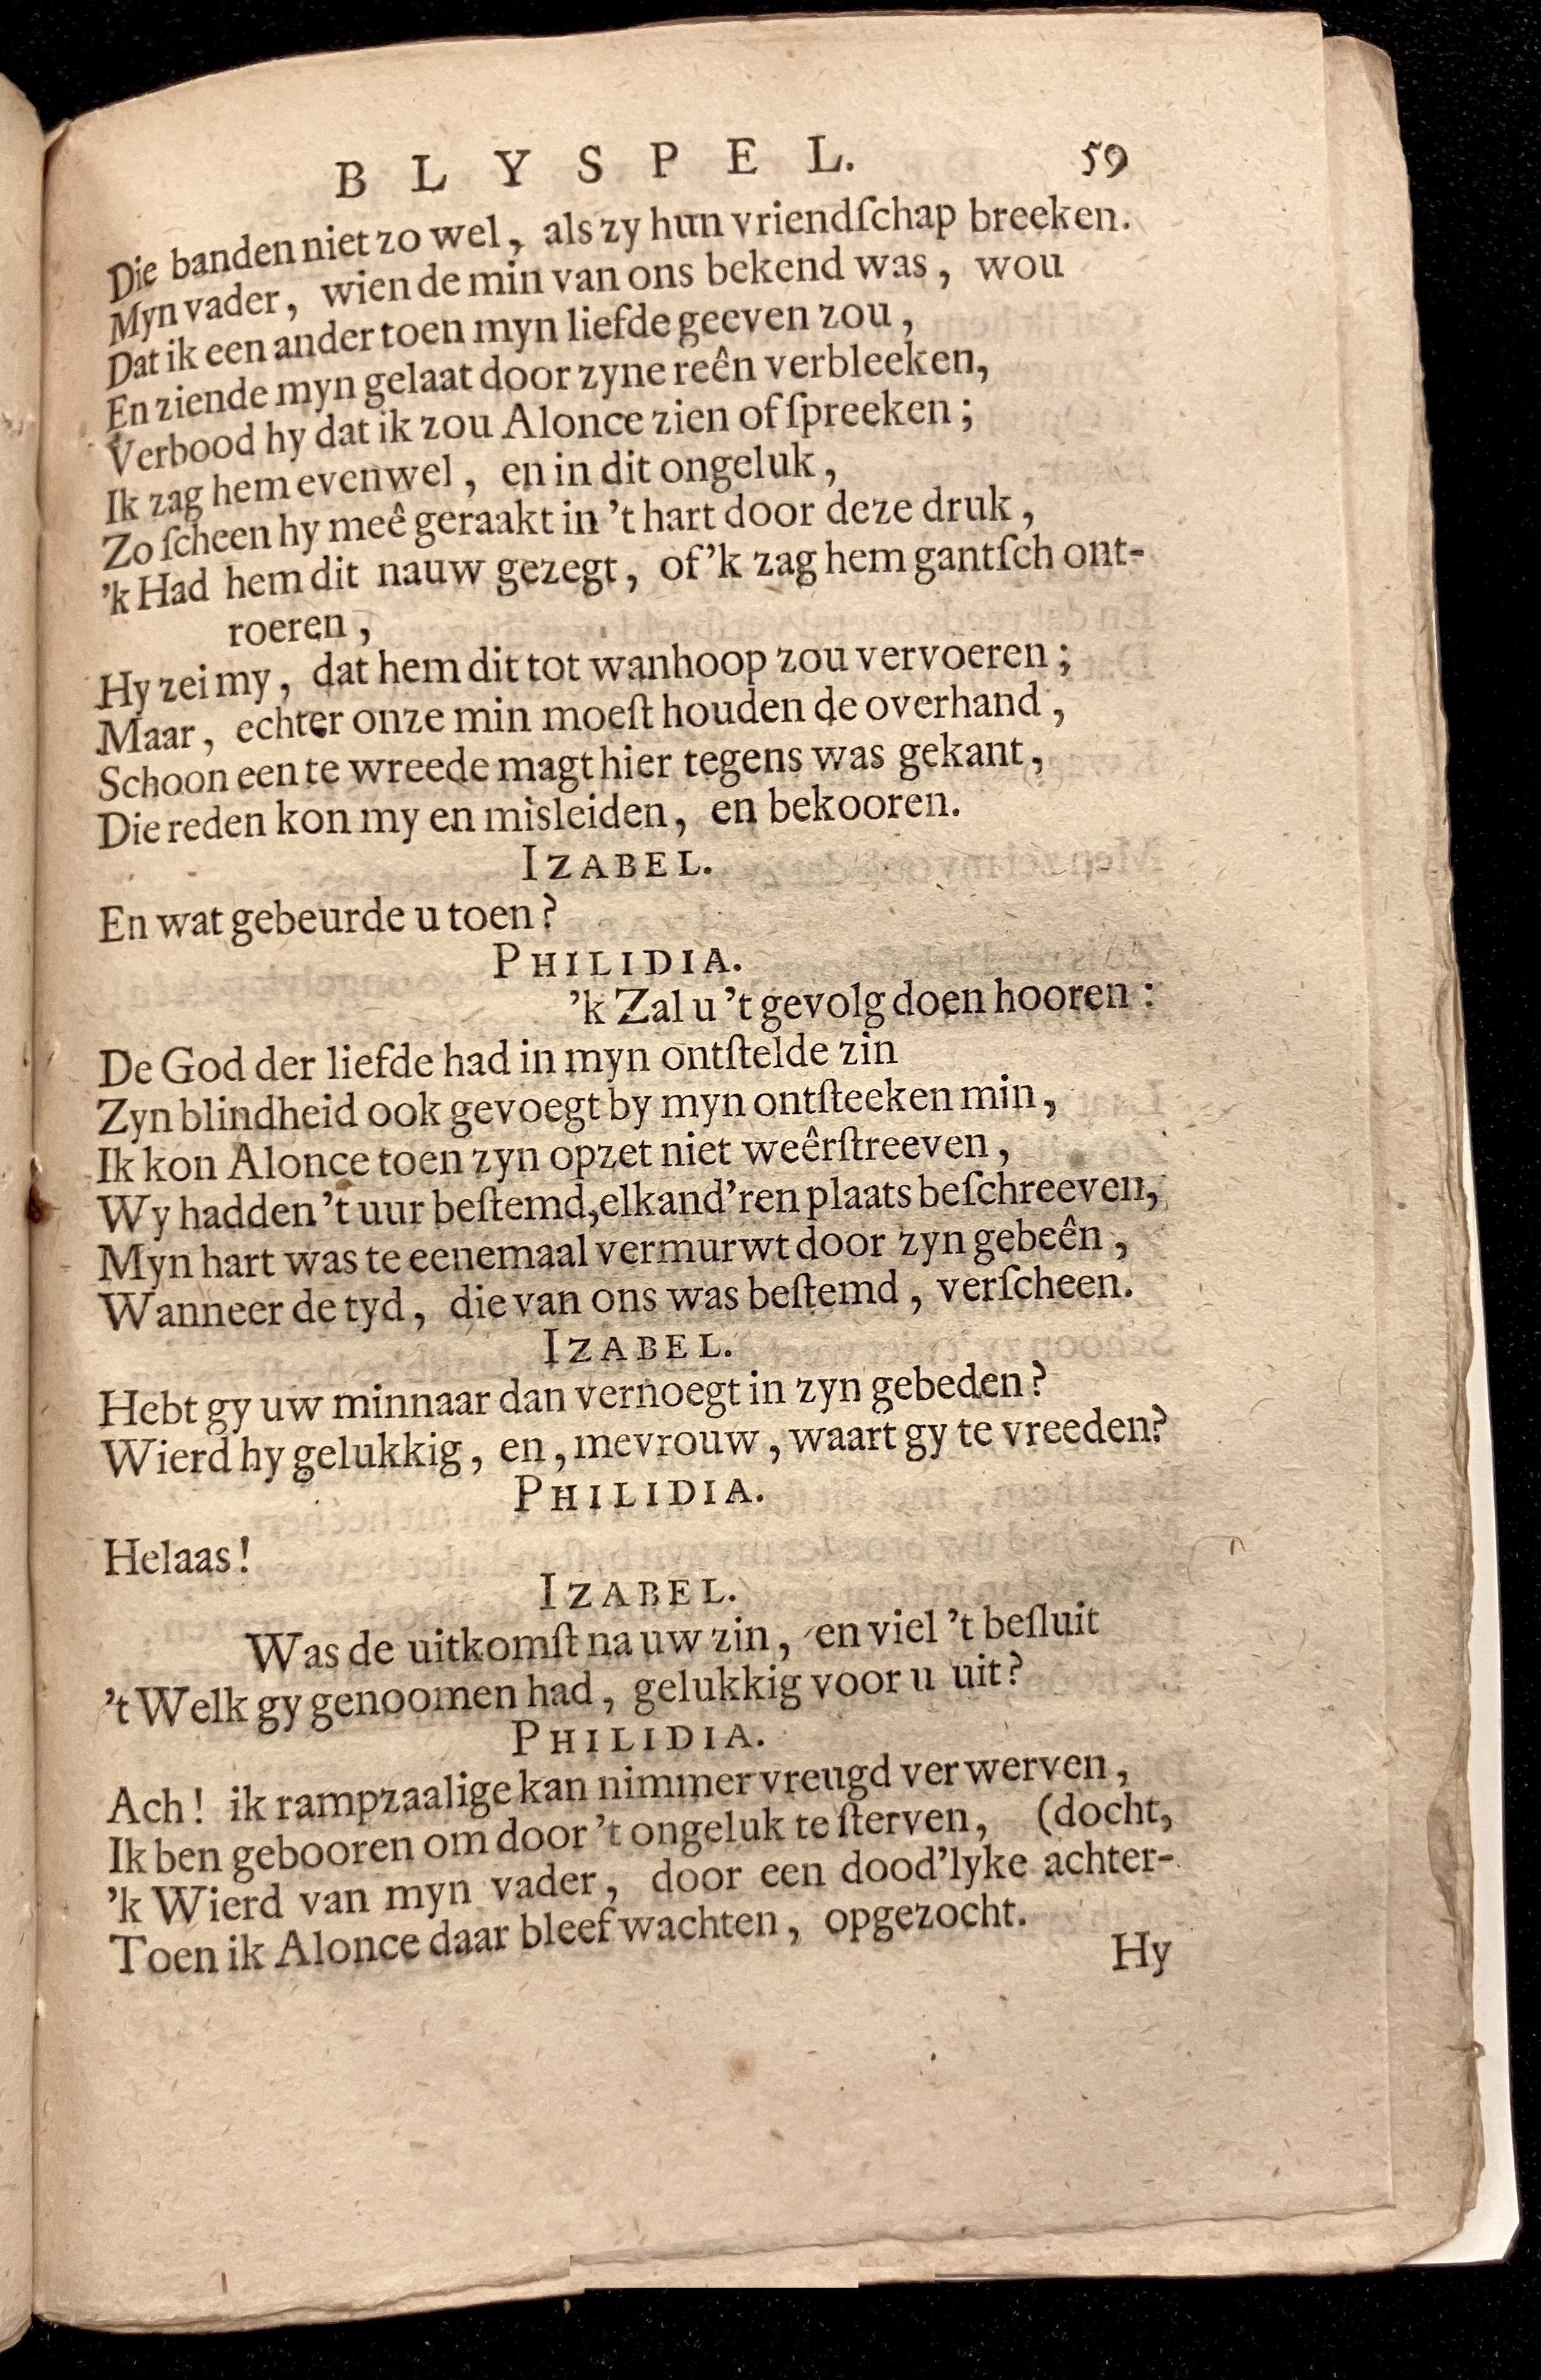 BLYSPEL. 59
Die banden niet zo wel, als zy hun vriendſchap breeken.
Myn vader, wien de min van ons bekend was, wou
Dat ik een ander toen myn liefde geeven zou,
En ziende myn gelaat door zyne reên verbleeken,
Verbood hy dat ik zou Alonce zien of ſpreeken;
Ik zag hem evenwel, en in dit ongeluk,
Zo ſcheen hy meê geraakt in 't hart door deze druk,
'k Had hem dit nauw gezegt, of 'k zag hem gantſch ont-
roeren,
Hy zei my, dat hem dit tot wanhoop zou vervoeren;
Maar, echter onze min moeſt houden de overhand,
Schoon een te wreede magt hier tegens was gekant,
Die reden kon my en misleiden, en bekooren.
IZABEL.
En wat gebeurde u toen?
PHILIDIA.
'k Zal u 't gevolg doen hooren:
De God der liefde had in myn ontſtelde zin
Zyn blindheid ook gevoegt by myn ontſteeken min,
Ik kon Alonce toen zyn opzet niet weêrſtreeven,
Wy hadden 't uur beſtemd, elkand'ren plaats beſchreeven,
Myn hart was te eenemaal vermurwt door zyn gebeên,
Wanneer de tyd, die van ons was beſtemd, verſcheen.
IZABEL.
Hebt gy uw minnaar dan vernoegt in zyn gebeden?
Wierd hy gelukkig, en, mevrouw, waart gy te vreeden?
PHILIDIA.
Helaas!
IZABEL.
Was de uitkomſt na uw zin, en viel 't beſluit
't Welk gy genoomen had, gelukkig voor u uit?
PHILIDIA.
Ach! ik rampzaalige kan nimmer vreugd verwerven,
Ik ben gebooren om door 't ongeluk te ſterven, (docht,
'k Wierd van myn vader, door een dood'lyke achter-
Toen ik Alonce daar bleef wachten, opgezocht.
Hy